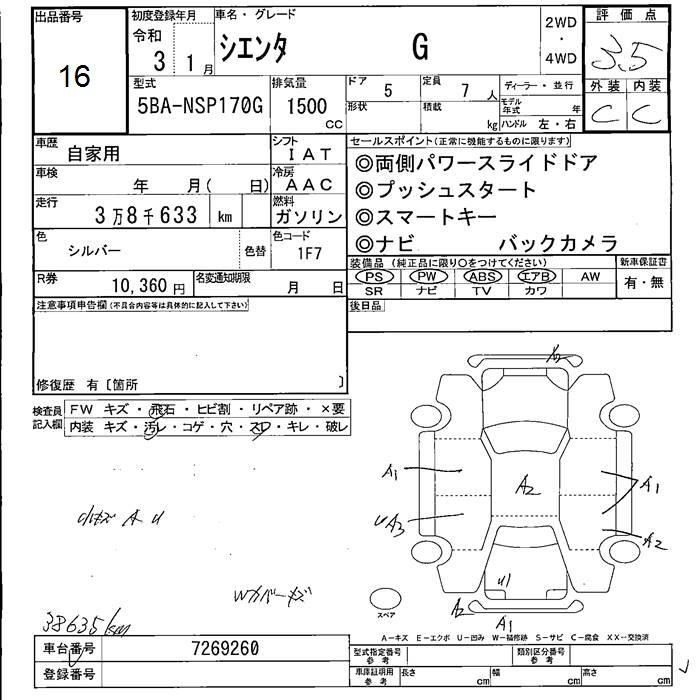 出品番号
16
初度登録年月
令和
3 1月
車名・グレード
シエンタ G
2WD
・
4WD
評価点
3.5
外装 内装
C C
型式
5BA-NSP170G
排気量
1500
cc
ドア 5
定員 7 人
形状
積載 kg
ディーラー・並行
モデル年式 年
ハンドル 左・右
車歴
自家用
シフト
IAT
車検
年 月( 日)
冷房
AAC
走行
3万8千633 km
燃料
ガソリン
色
シルバー
色替
色コード
1F7
R券
10,360 円
名変通知期限
月 日
セールスポイント(正常に機能するものに限ります)
◎両側パワースライドドア
◎プッシュスタート
◎スマートキー
◎ナビ バックカメラ
装備品 (純正品に限り○をつけてください)
PS PW ABS エアB AW
SR ナビ TV カワ
新車保証書
有・無
後日品
注意事項申告欄(不具合内容等は具体的に記入して下さい)
修復歴 有〔箇所 〕
検査員記入欄
FW キズ・飛石・ヒビ割・リペア跡・×要
内装 キズ・汚レ・コゲ・穴・スレ・キレ・破レ
A1
UA3
A2
A1
A2
小キズ A U
Wカバーキズ
U1
A2
A1
スペア
38635km
A-キズ E-エクボ U-凹み W-補修跡 S-サビ C-腐食 XX-交換済
車台番号
7269260
登録番号
型式指定番号
参考
類別区分番号
参考
車庫証明用
参考
長さ cm
幅 cm
高さ cm